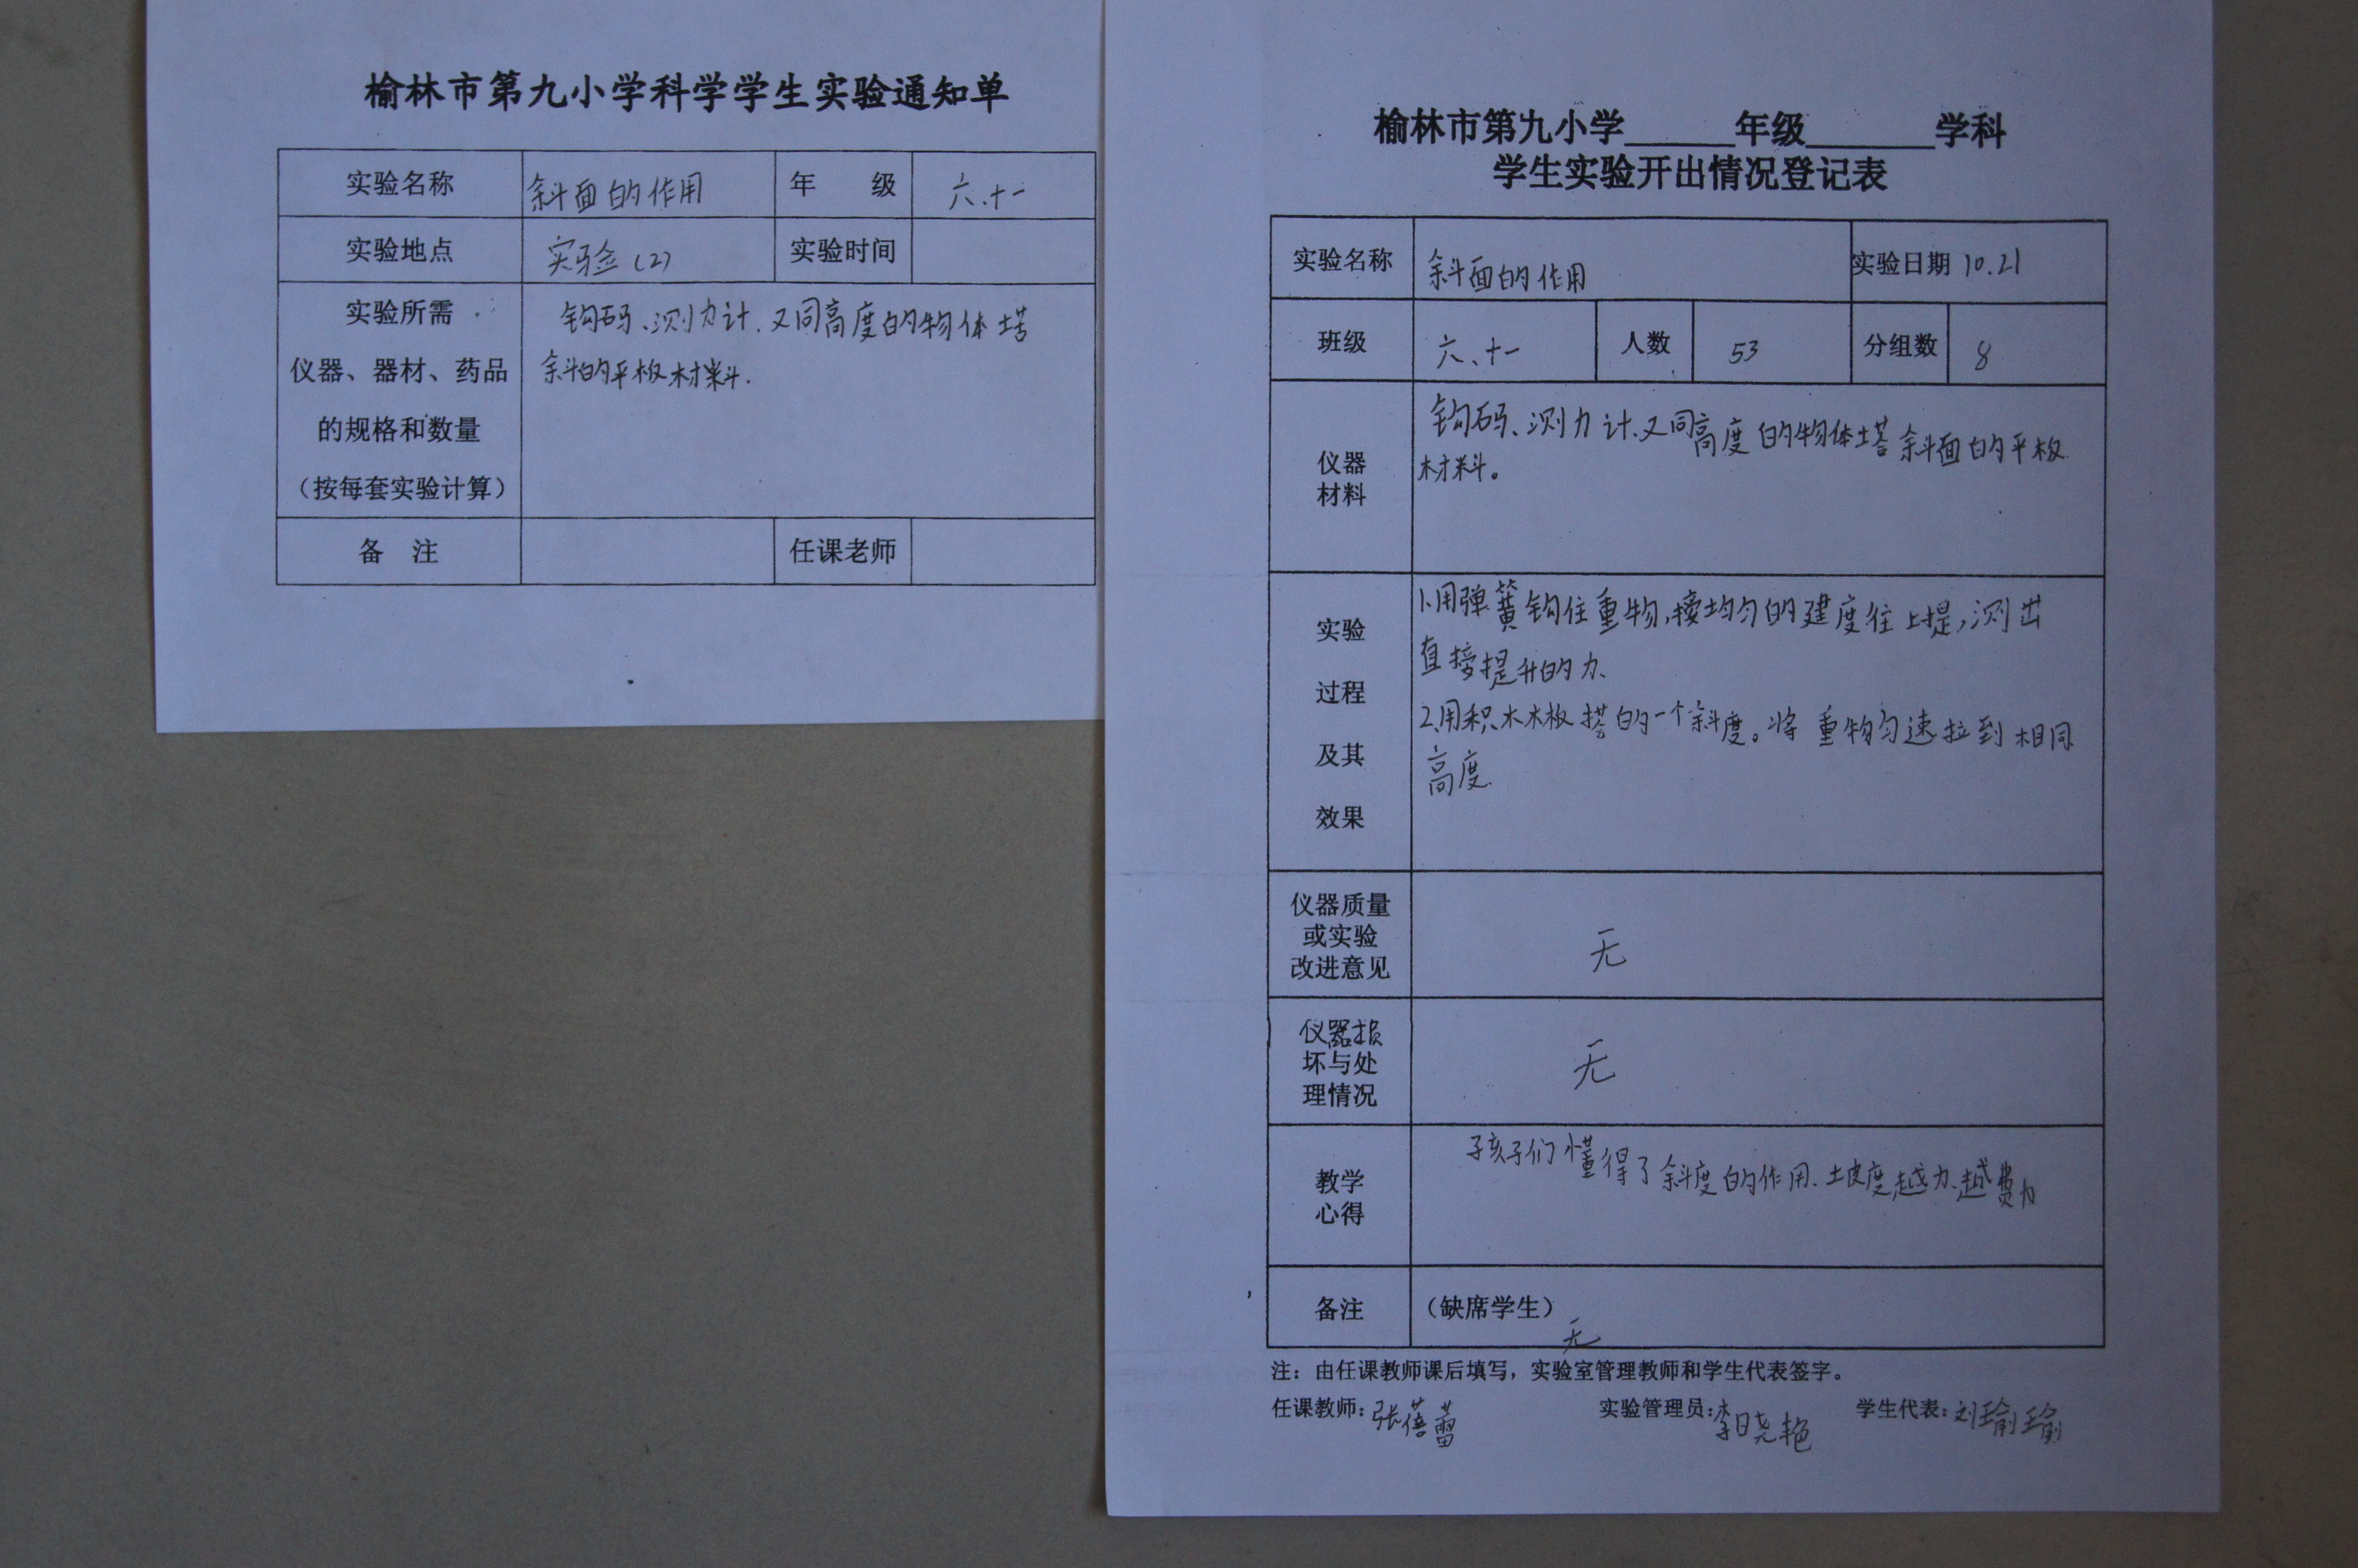 榆林市第九小学科学学生实验通知单
实验名称 斜面的作用 年 级 六.十一
实验地点 实验(2) 实验时间
实验所需
仪器、器材、药品
的规格和数量
(按每套实验计算)
钩码、测力计.又同高度的物体塔
斜的平板材料.
备 注 任课老师
榆林市第九小学______年级______学科
学生实验开出情况登记表
实验名称 斜面的作用 实验日期 10.21
班级 六、十一 人数 53 分组数 8
仪器
材料
钩码、测力计.又同高度的物体塔斜面的平板
材料。
实验
过程
及其
效果
1.用弹簧钩住重物,接均匀的建度往上提,测出
直接提升的力、
2.用积木木板搭的一个斜度。将重物匀速拉到相同
高度.
仪器质量
或实验
改进意见
无
仪器损
坏与处
理情况
无
教学
心得
孩子们懂得了斜度的作用.坡度越力.越费力
备注 (缺席学生)
无
注:由任课教师课后填写,实验室管理教师和学生代表签字。
任课教师:张蓓蕾 实验管理员:李晓艳 学生代表:刘瑜瑜